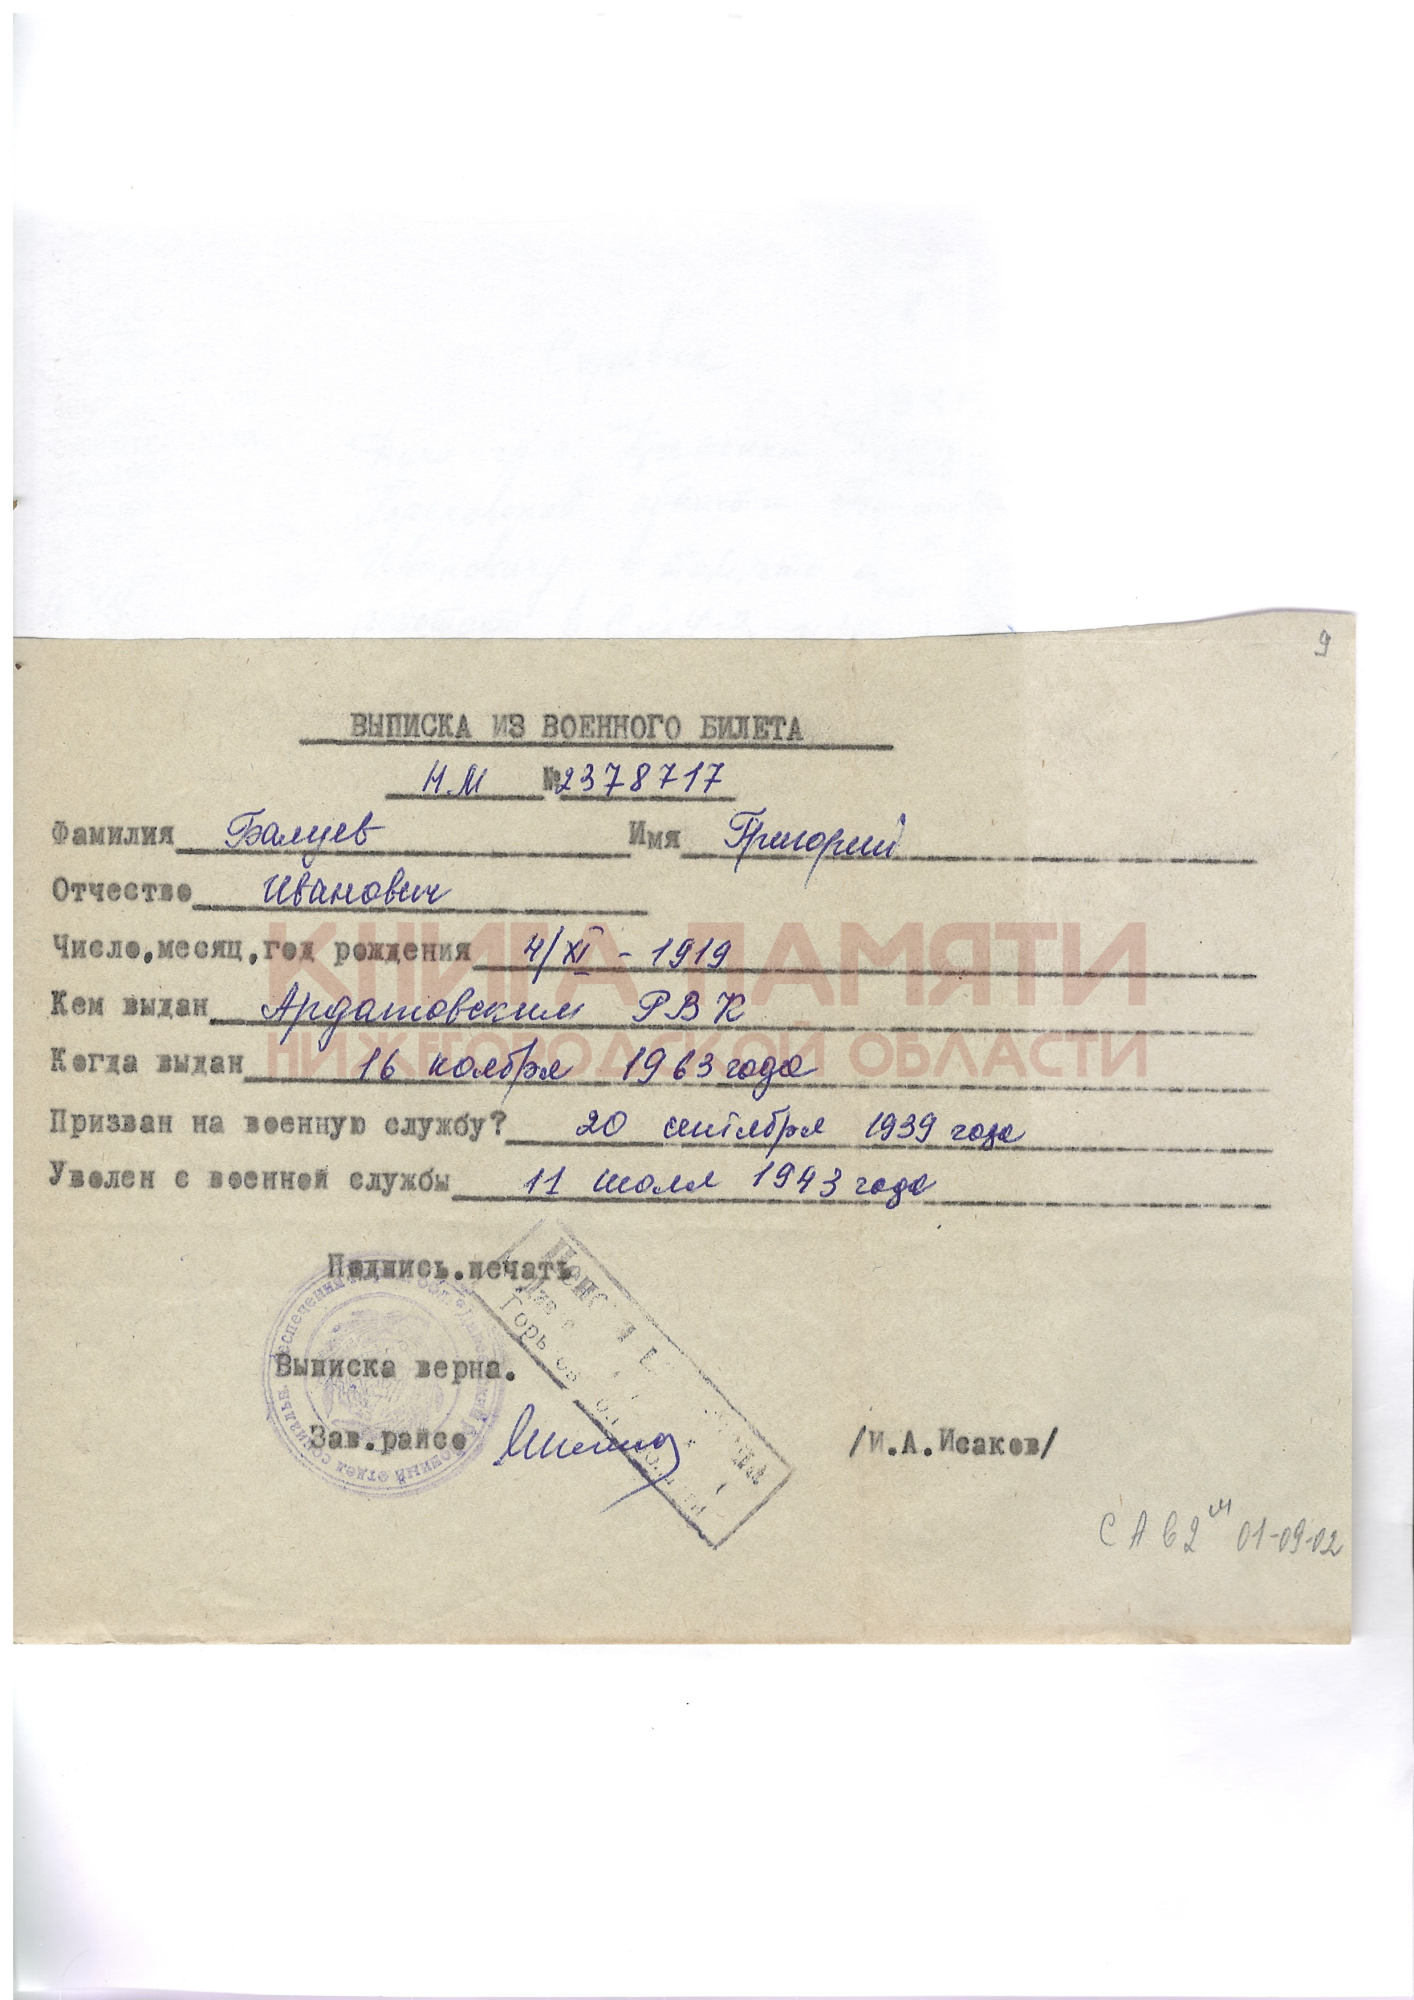 9
ВЫПИСКА ИЗ ВОЕННОГО БИЛЕТА
Н.М №2378717
Фамилия Балуев Имя Григорий
Отчество Иванович
Число,месяц,год рождения 4/XI - 1919
КНИГА ПАМЯТИ
Кем выдан Ардатовским РВК
НИЖЕГОРОДСКОЙ ОБЛАСТИ
Когда выдан 16 ноября 1963 года
Призван на военную службу? 20 сентября 1939 года
Уволен с военной службы 11 июля 1943 года
Подпись.печать
Выписка верна.
Зав.райсо /И.А.Исаков/
СА 62 01-09-02